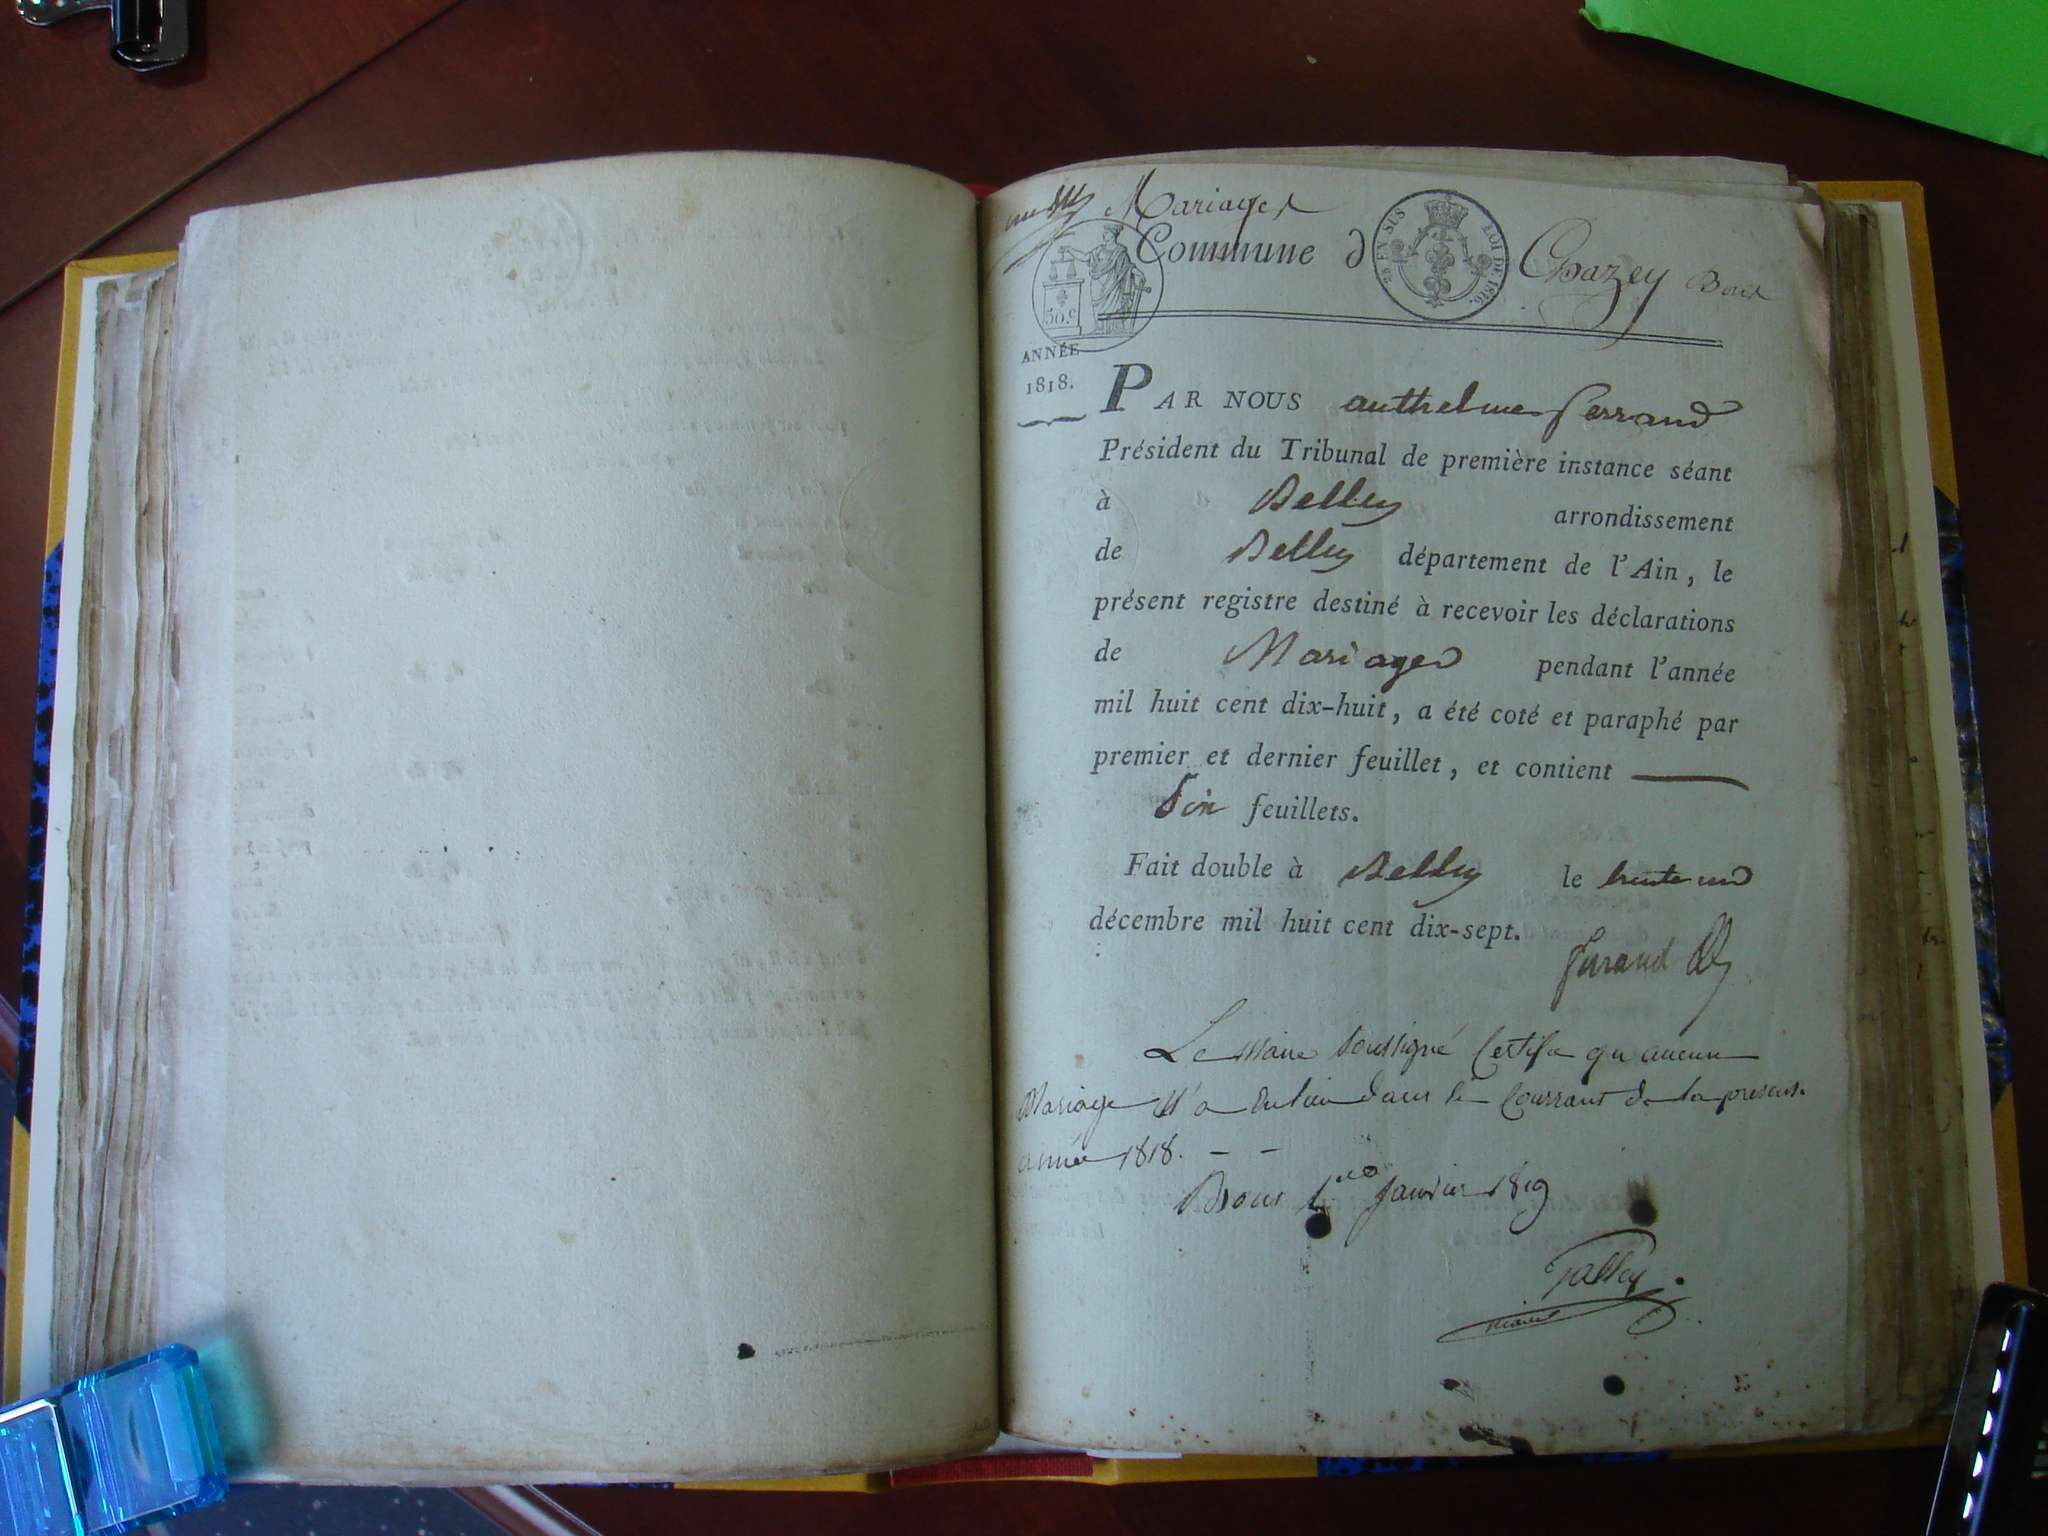 Mariages
Commune d Chazey Bons
25 EN SUS LOI DE 1816.
50. c
ANNÉE
1818.
PAR NOUS anthelme ferrand
Président du Tribunal de première instance séant
à Belley arrondissement
de Belley département de l'Ain, le
présent registre destiné à recevoir les déclarations
de Mariages pendant l'année
mil huit cent dix-huit, a été coté et paraphé par
premier et dernier feuillet, et contient
Six feuillets.
Fait double à Belley le trente un
décembre mil huit cent dix-sept.
ferrand
Le maire soussigné Certifie qu'aucun
Mariage N'a Eu lieu dans le Courrant de la présente
année 1818. - -
Bons 1er Janvier 1819
maire